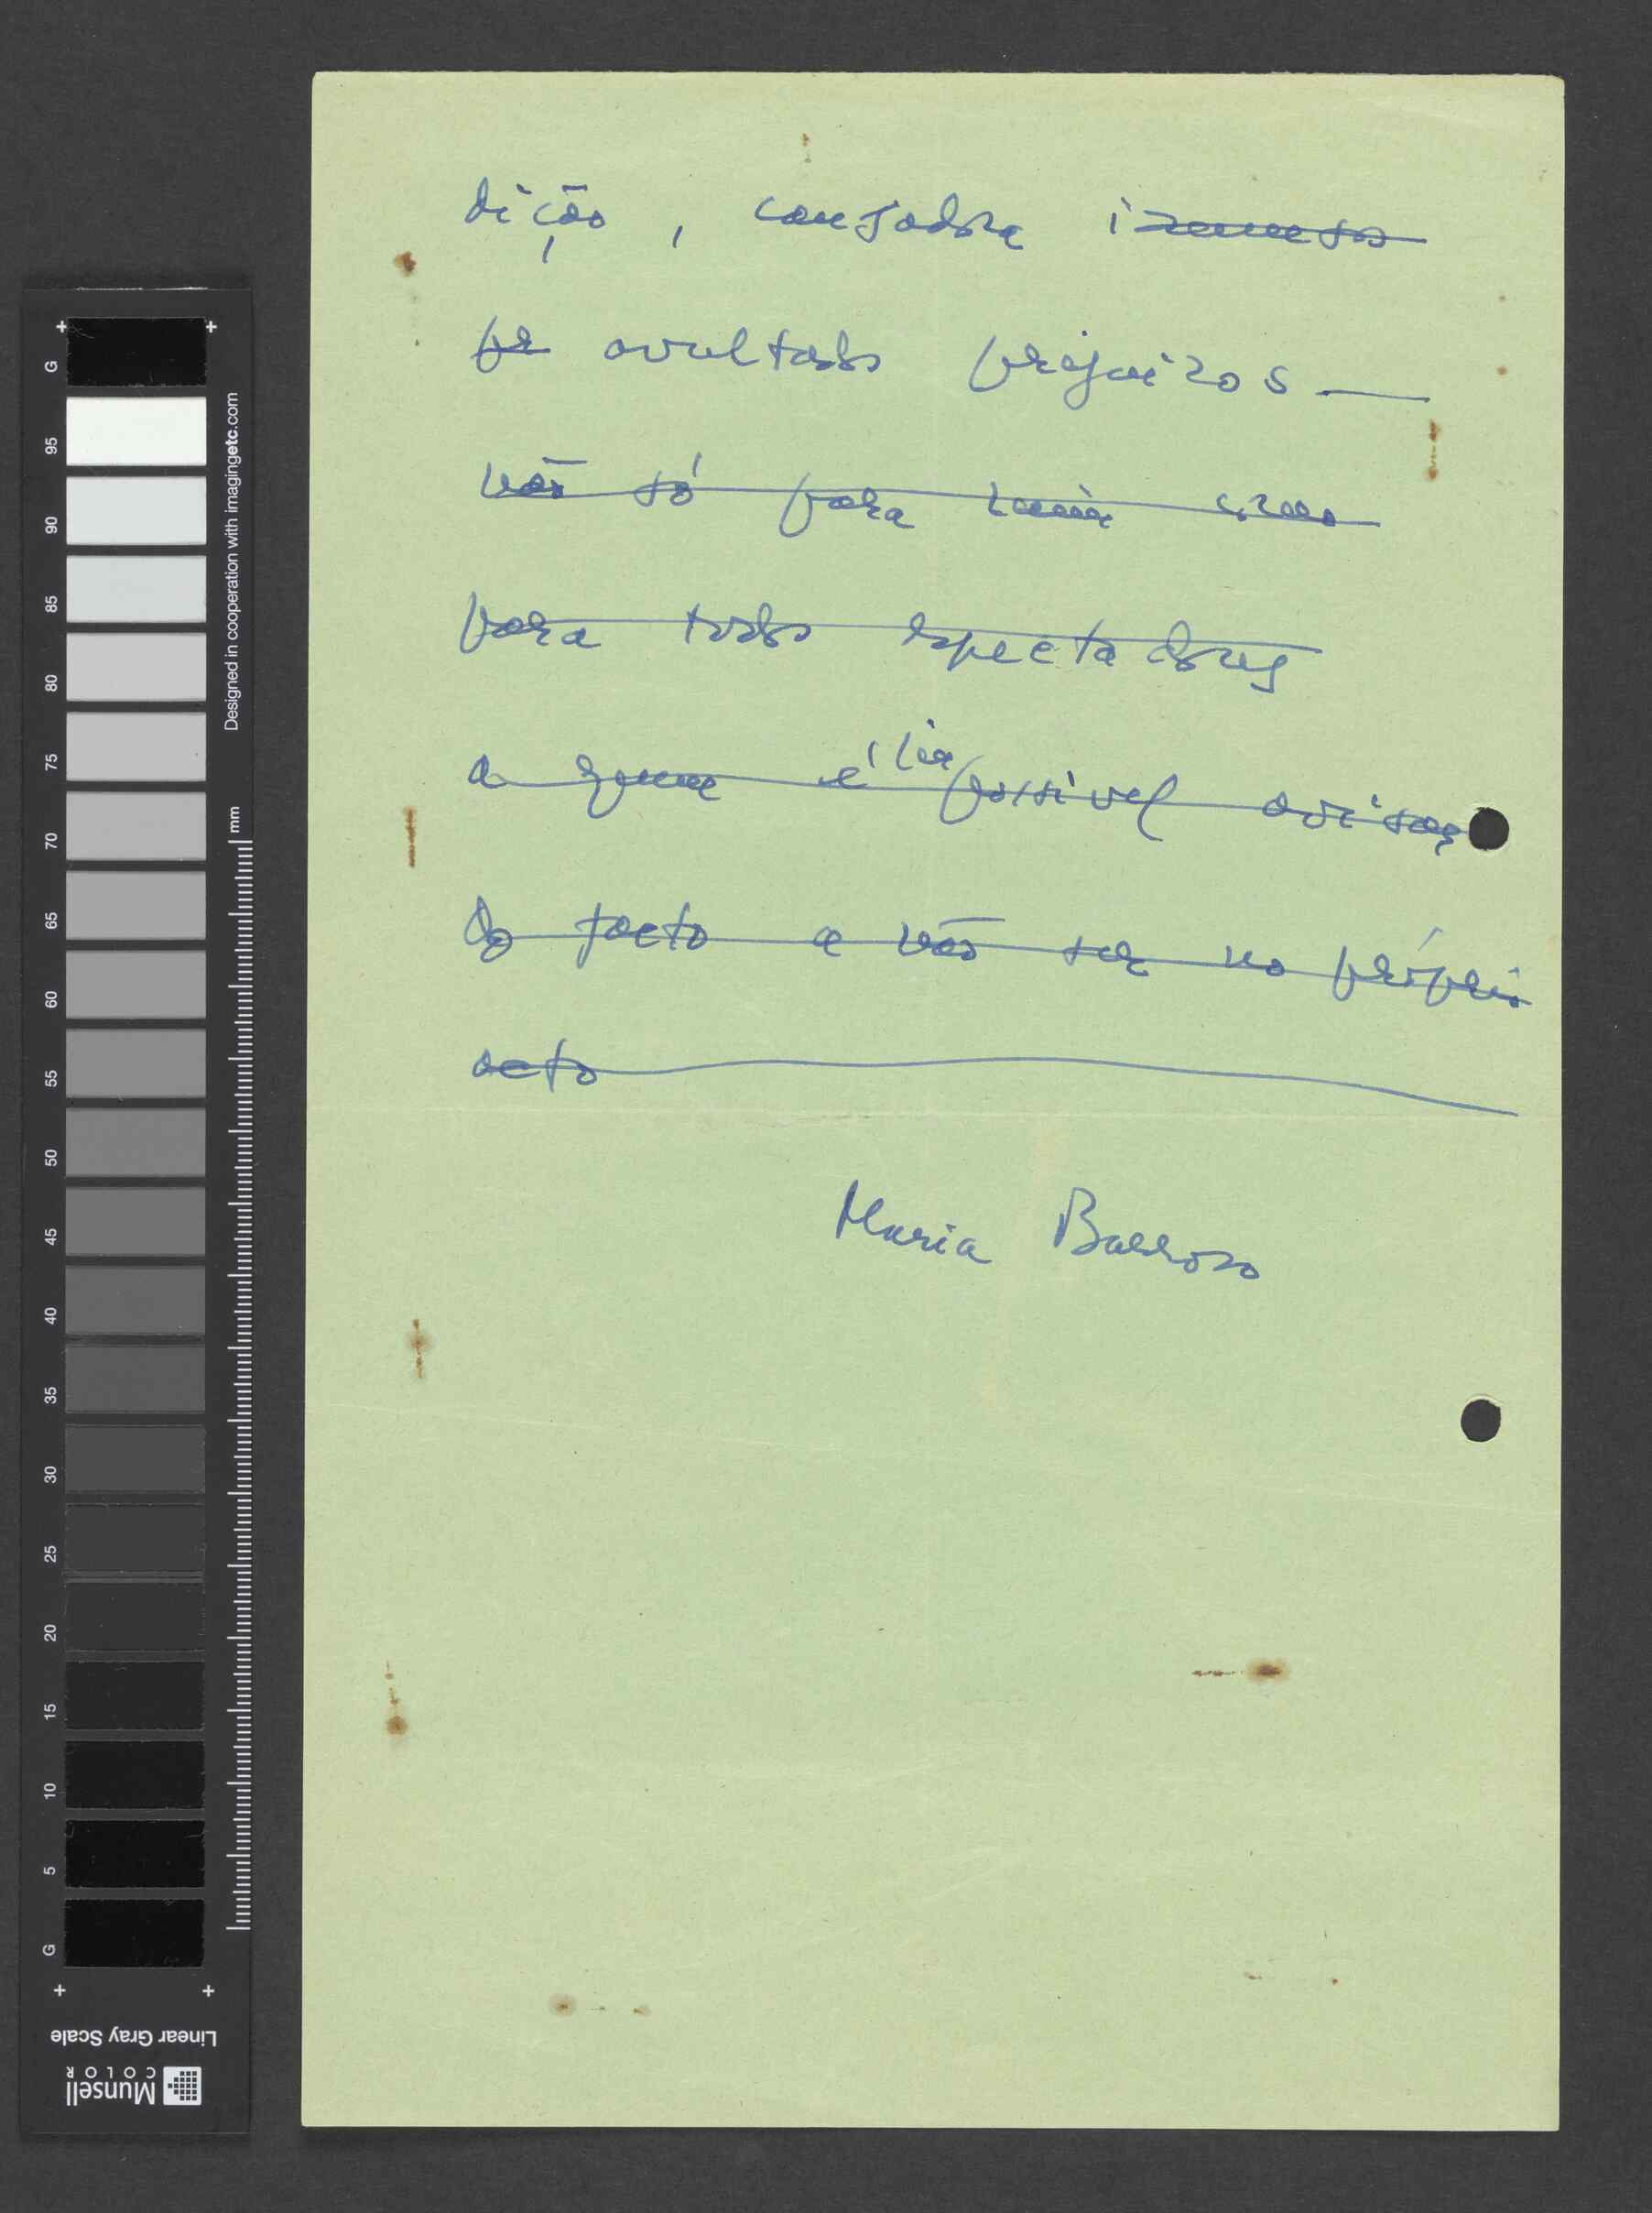 dição, causadora imensos
pr avultados prejuizos —
não só para mim como
para todos espectadores
a quem é im possivel avisar
do facto a não ser no próprio
acto
Maria Barroso
G
95
90
85
80
75
70
65
60
55
50
45
40
35
30
25
20
15
10
5
G
mm
Designed in cooperation with imagingetc.com
Linear Gray Scale
Munsell
COLOR